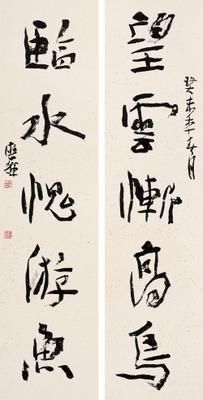 望雲慚高鳥
癸未年
臨水愧游魚